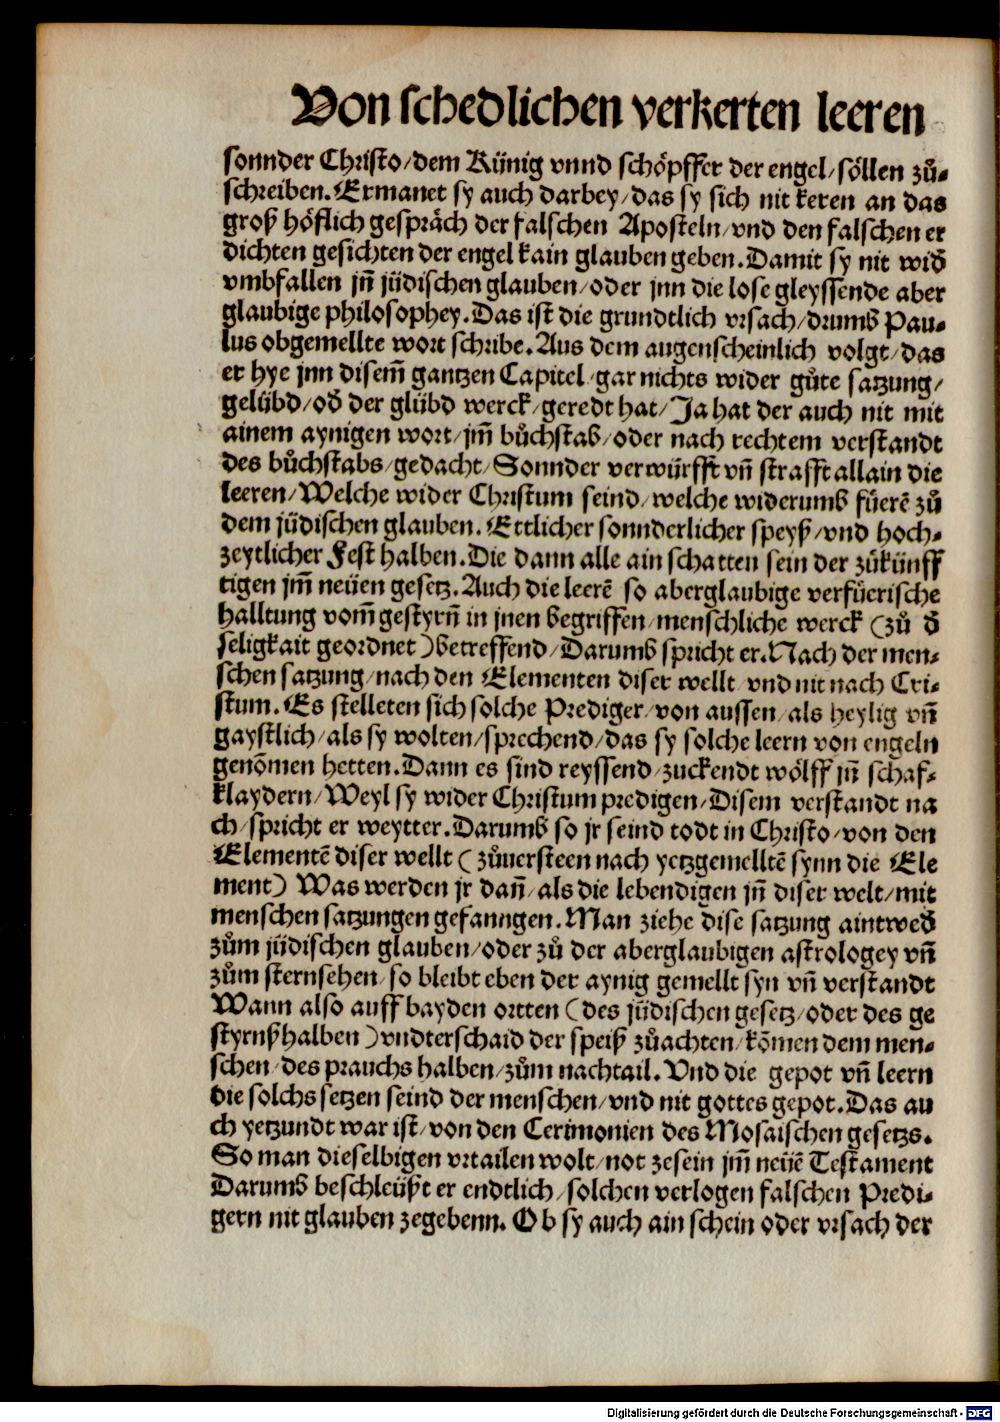 Von schedlichen verkerten leeren
sonnder Christo/dem Künig vnnd schöpffer der engel/söllen zů-
schreiben. Ermanet sy auch darbey/das sy sich nit keren an das
groß höflich gespräch der falschen Aposteln/vnd den falschen er
dichten gesichten der engel kain glauben geben. Damit sy nit wid̄
vmbfallen jn̄ jüdischen glauben/oder jnn die lose gleyssende aber
glaubige philosophey. Das ist die grundtlich vrsach/drumb Pau-
lus obgemellte wort schribe. Aus dem augenscheinlich volgt/das
er hye jnn disem̄ gantzen Capitel/gar nichts wider gůte satzung/
gelübd/od̄ der glübd werck/geredt hat/Ja hat der auch nit mit
ainem aynigen wort/jm̄ bůchstab/oder nach rechtem verstandt
des bůchstabs/gedacht/Sonnder verwürfft vn̄ strafft allain die
leeren/Welche wider Christum seind/welche widerumb füerē zů
dem jüdischen glauben. Ettlicher sonnderlicher speyß/vnd hoch-
zeytlicher Fest halben. Die dann alle ain schatten sein der zůkünff
tigen jm̄ neüen gesetz. Auch die leerē so aberglaubige verfüerische
halltung vom̄ gestyrn̄ in jnen begriffen/menschliche werck (zů d̄
seligkait geordnet) betreffend/Darumb spricht er. Nach der men-
schen satzung/nach den Elementen diser wellt/vnd nit nach Cri-
stum. Es stelleten sich solche Prediger/von aussen/als heylig vn̄
gaystlich/als sy wolten/sprechend/das sy solche leern von engeln
genōmen hetten. Dann es sind reyssend/zuckendt wölff jn̄ schaf-
klaydern/Weyl sy wider Christum predigen/Disem verstandt na
ch/spricht er weytter. Darumb so jr seind todt in Christo/von den
Elementē diser wellt (zůuersteen nach yetzgemelltē synn die Ele
ment) Was werden jr dan̄/als die lebendigen jn̄ diser welt/mit
menschen satzungen gefanngen. Man ziehe dise satzung aintwed̄
zům jüdischen glauben/oder zů der aberglaubigen astrologey vn̄
zům sternsehen/so bleibt eben der aynig gemellt syn vn̄ verstandt
Wann also auff bayden ortten (des jüdischen gesetz/oder des ge
styrnß halben) vndterschaid der speiß zůachten/kōmen dem men-
schen/des prauchs halben/zům nachtail. Vnd die gepot vn̄ leern
die solchs setzen seind der menschen/vnd nit gottes gepot. Das au
ch yetzundt war ist/von den Cerimonien des Mosaischen gesetzs.
So man dieselbigen vrtailen wolt/not zesein jm̄ neüē Testament
Darumb beschleüßt er endtlich/solchen verlogen falschen Predi-
gern nit glauben zegebenn. Ob sy auch ain schein oder vrsach der
Digitalisierung gefördert durch die Deutsche Forschungsgemeinschaft - DFG